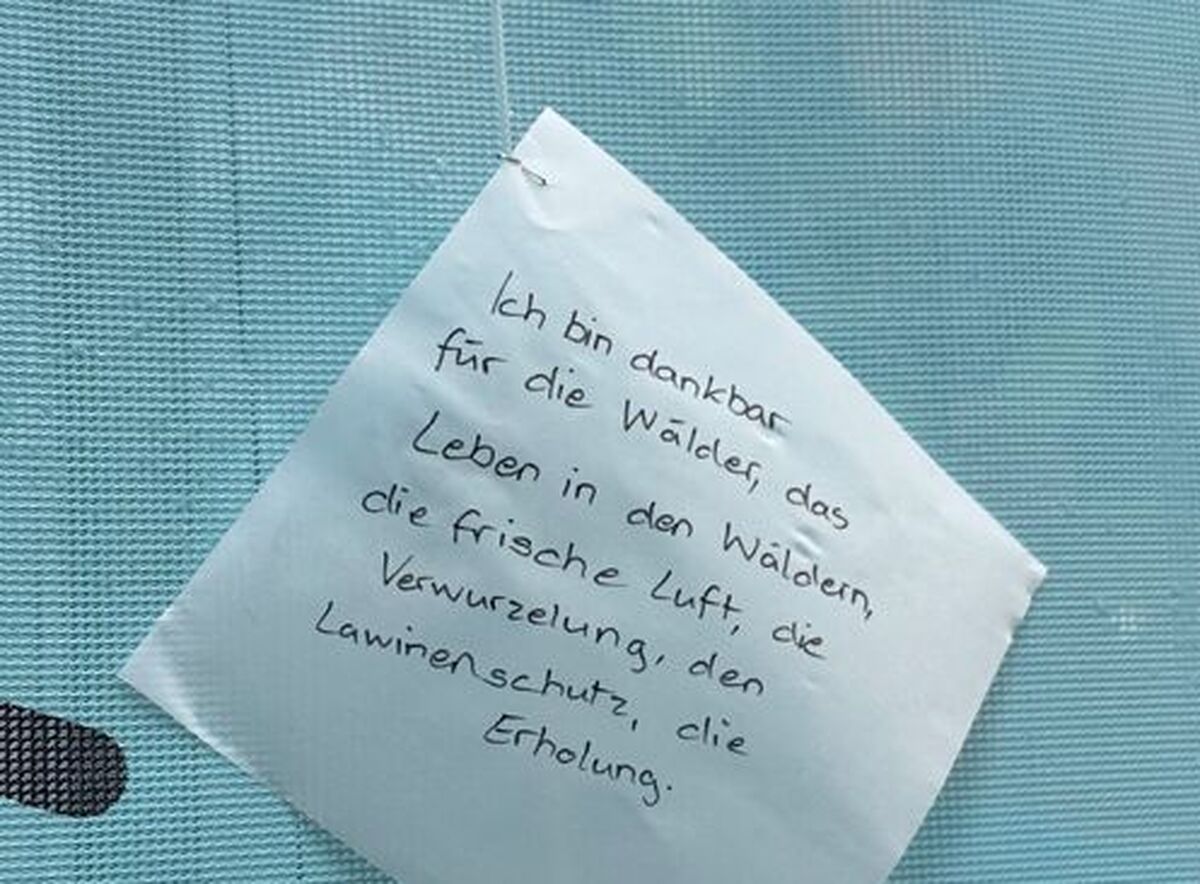 Ich bin dankbar
für die Wälder, das
Leben in den Wäldern,
die frische Luft, die
Verwurzelung, den
Lawinenschutz, die
Erholung.